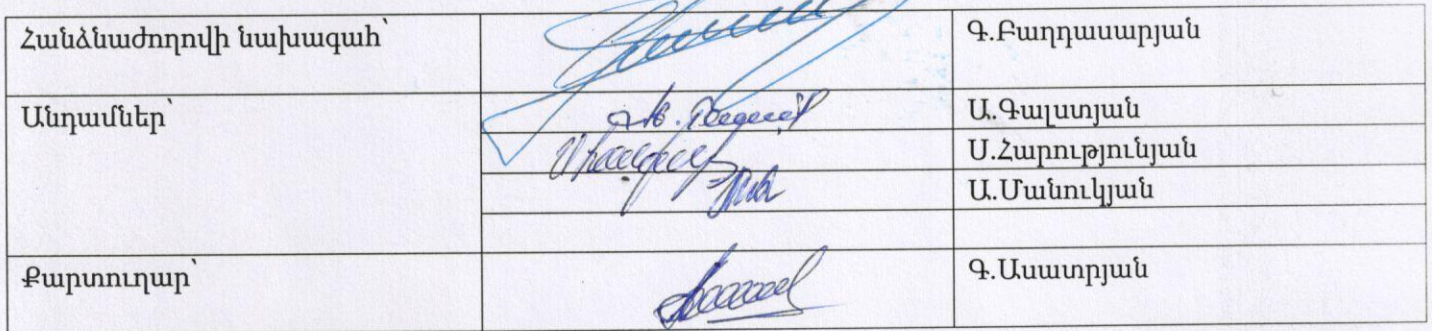 Հանձնաժողովի նախագահ՝ Գ.Բաղդասարյան
Անդամներ՝ Ա.Գալստյան
Ս.Հարությունյան
Ա.Մանուկյան
Քարտուղար՝ Գ.Ասատրյան